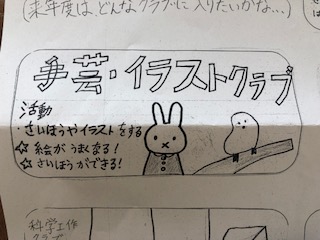 (来年度は、どんなクラブに入りたいかな…)
手芸・イラストクラブ
活動
・さいほうやイラストをする
☆絵がうまくなる!
☆さいほうができる!
科学工作
クラブ